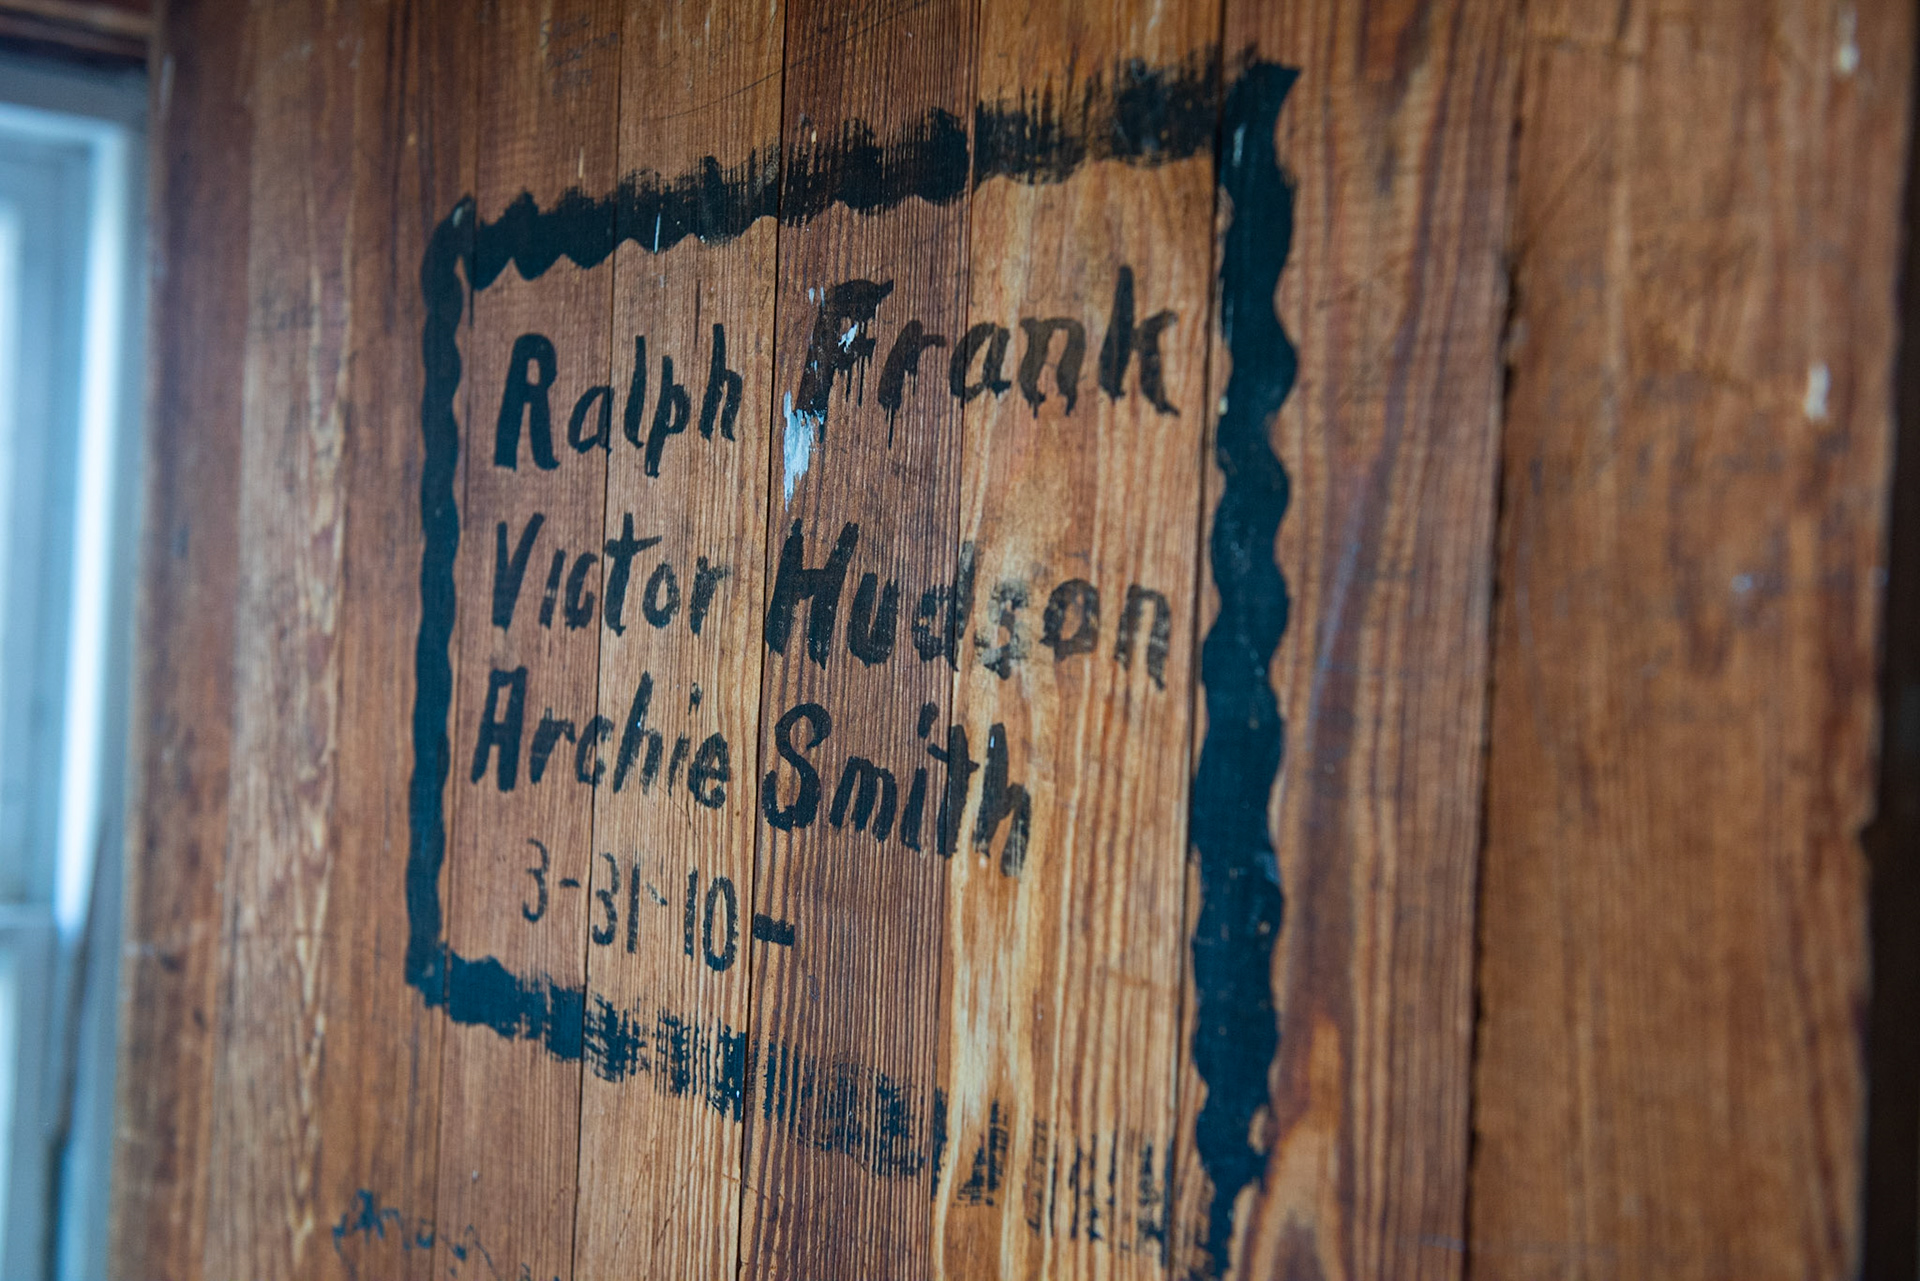 Ralph Frank
Victor Hudson
Archie Smith
3-31-10-